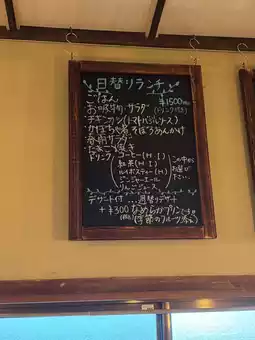 日替りランチ
ごはん
¥1500
お吸物・サラダ
(ドリンク付き)
・チキンカツ(トマトバジルソース)
・かぼちゃ煮 そぼろあんかけ
・春雨サラダ
・たまご焼き
ドリンク
コーヒー(H・I)
紅茶(H・I)
ルイボスティー(H・I)
ジンジャーエール
りんごジュース
この中から
お選び
下さい
デザート付 … 週替りデザート
+¥300 なめらかプリン
(季節のフルーツ添え)